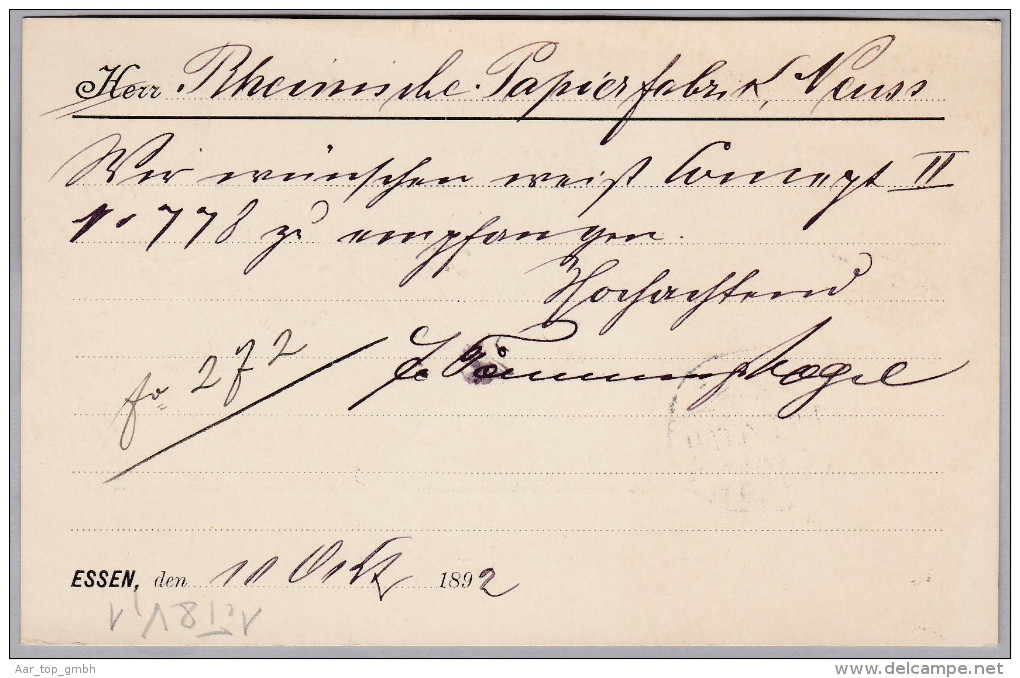 Herr Rheinische Papierfabrik, Neuss
Wir wünschen weiß Concept II
No 778 zu empfangen.
Hochachtend
fo 272
ESSEN, den 10 Okt 1892
Aar_top_gmbh
www.delcampe.net